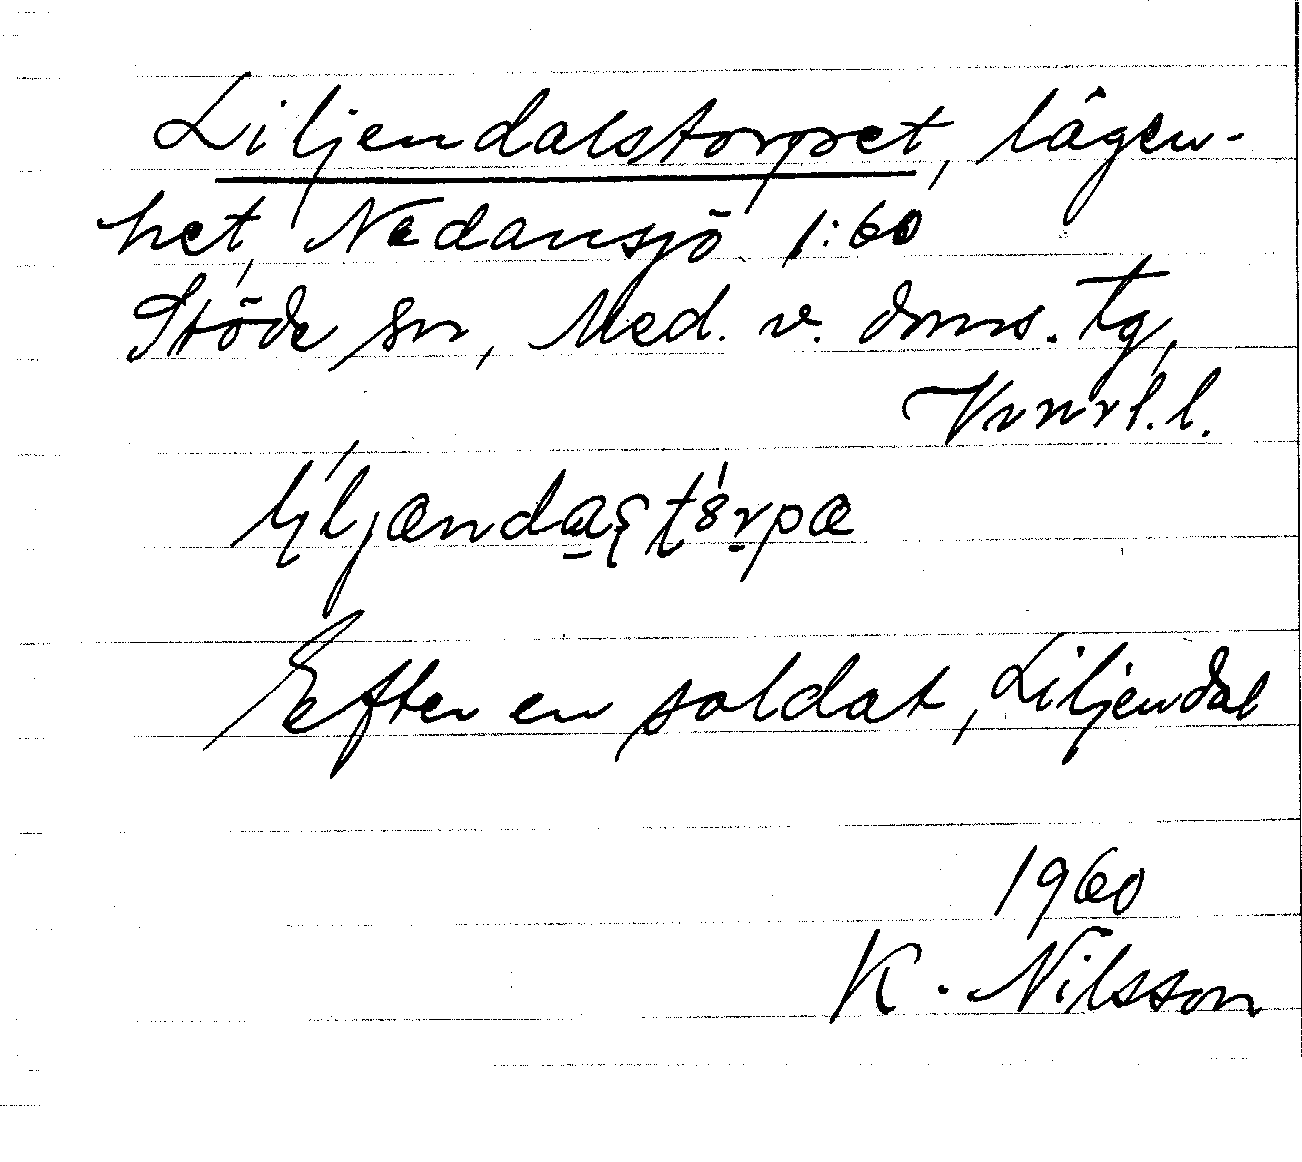 Liljendalstorpet, lägen-
het, Nedansjö 1:60
Stöde sn, Med. v. doms. tg,
Vnrl. l.
Efter en soldat, Liljendal
1960
K. Nilsson